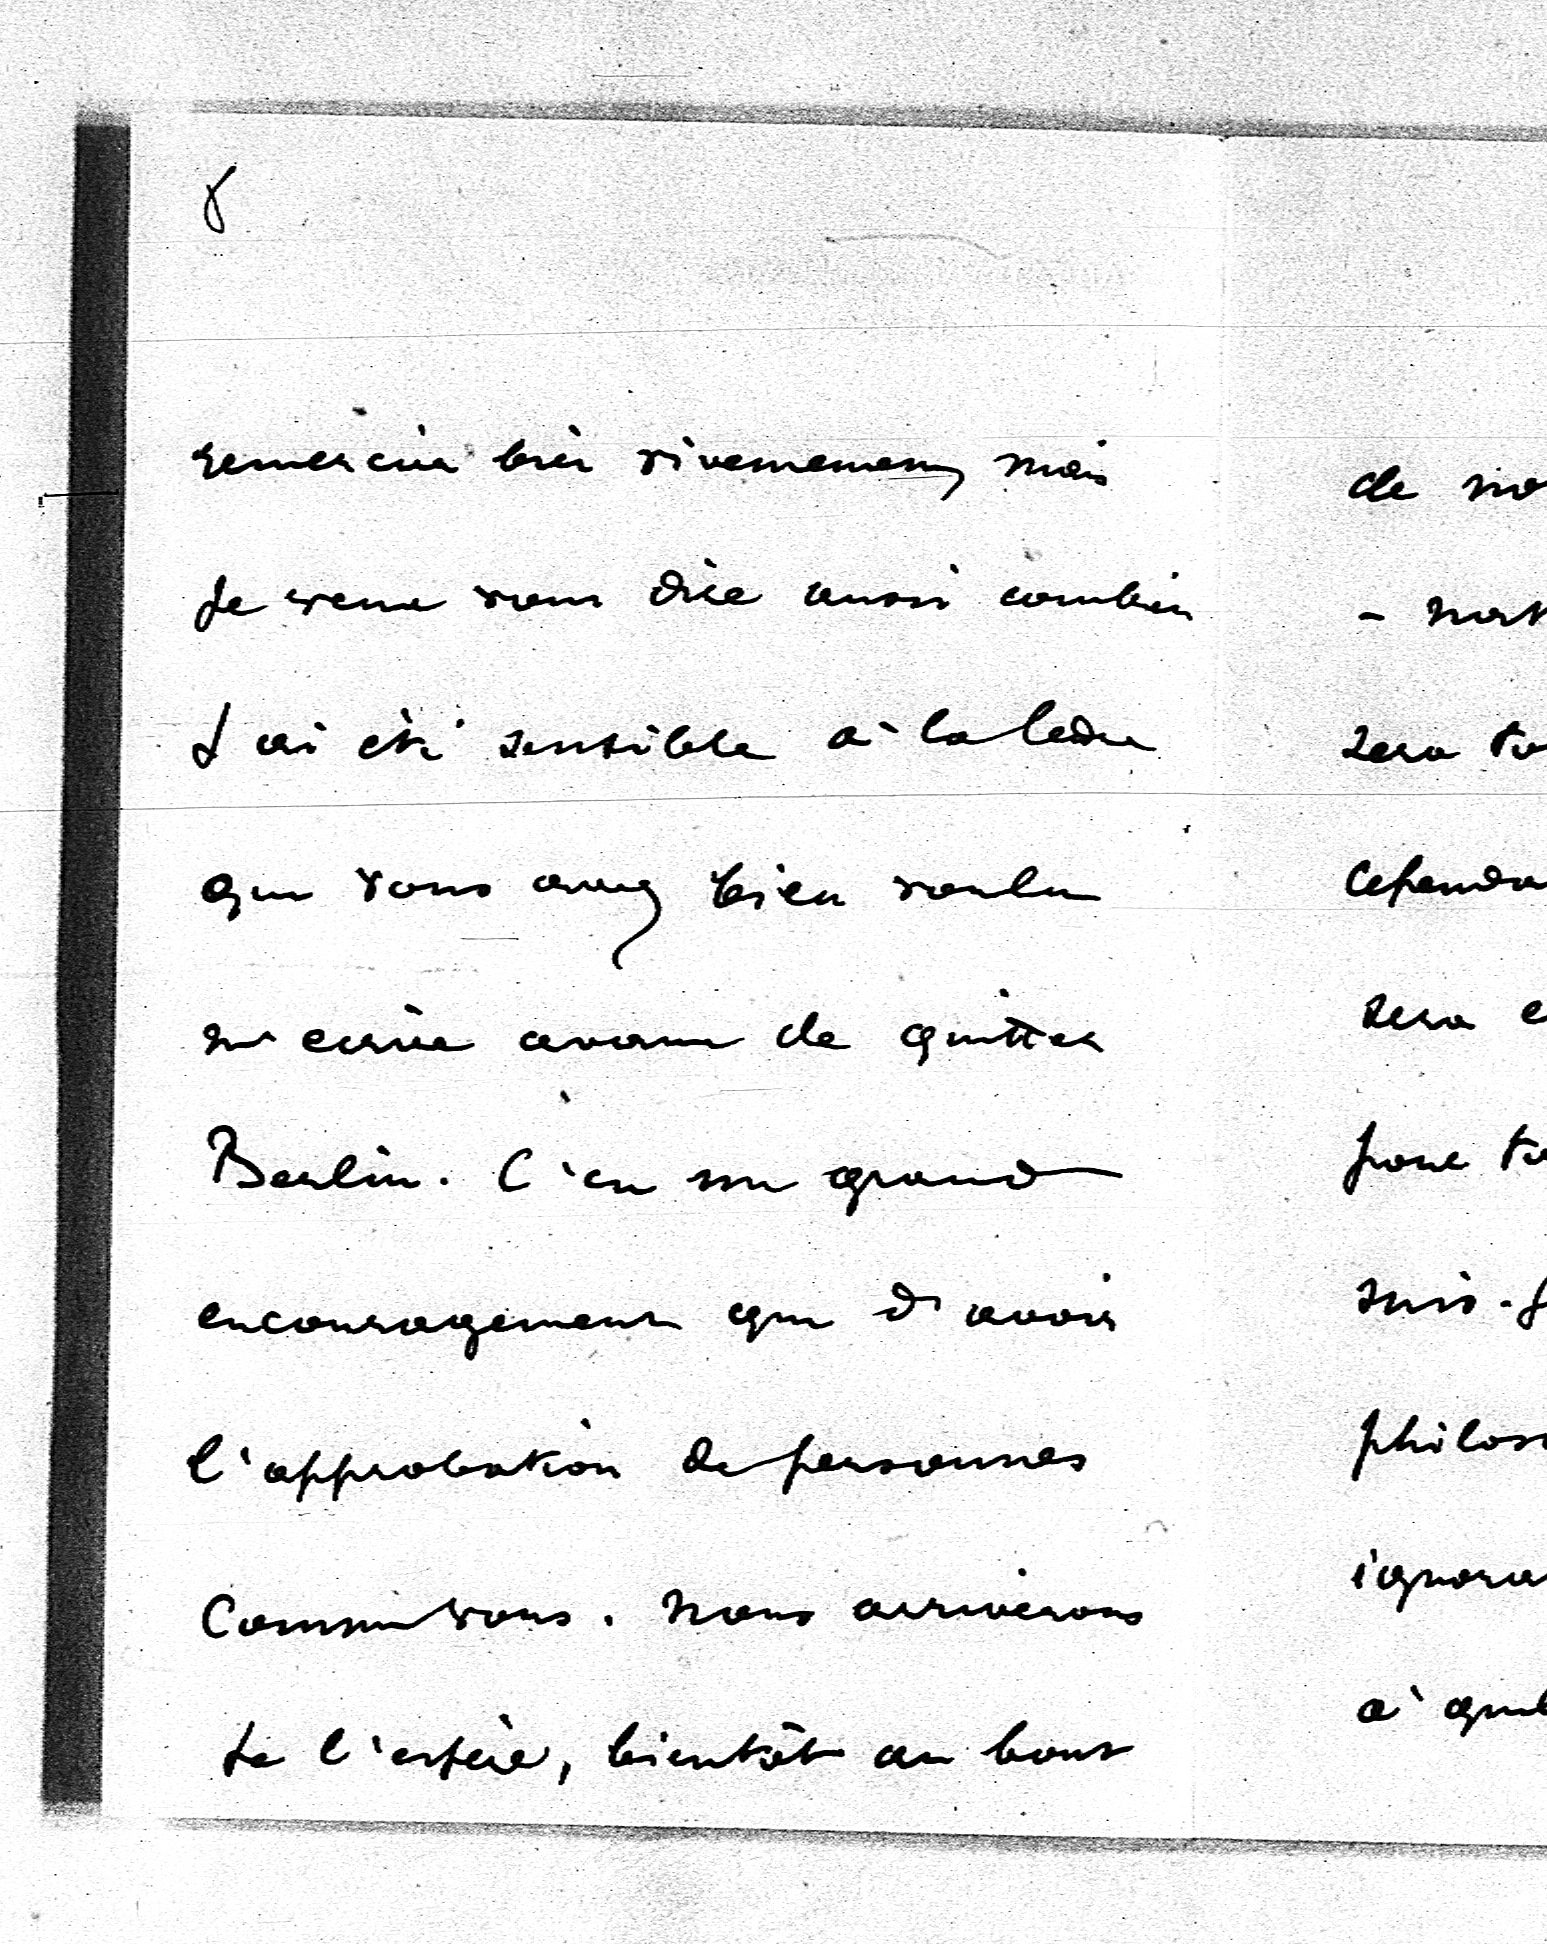 8
remercier bien vivement, mais
je veux vous dire aussi combien
j'ai été sensible à la lettre
que vous avez bien voulu
m'écrire avant de quitter
Berlin. C'est un grand
encouragement que d'avoir
l'approbation de personnes
comme vous. Nous arriverons
je l'espère, bientôt au bout
de no
- not
sera to
cependa
sera e
pour to
suis-j
philoso
ignora
à quel